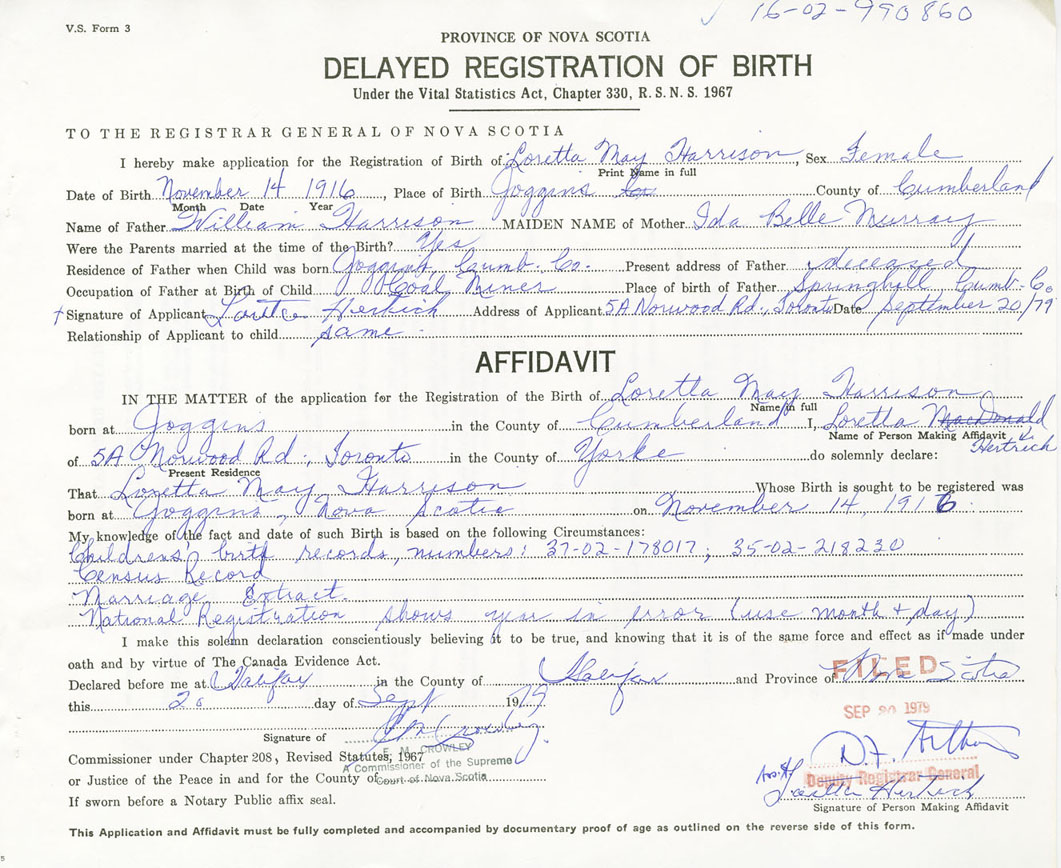 V.S. Form 3
✓ 16-02-990860
PROVINCE OF NOVA SCOTIA
DELAYED REGISTRATION OF BIRTH
Under the Vital Statistics Act, Chapter 330, R.S.N.S. 1967
TO THE REGISTRAR GENERAL OF NOVA SCOTIA
I hereby make application for the Registration of Birth of Loretta May Harrison, Sex Female
Print Name in full
Date of Birth November 14 1916, Place of Birth Joggins County of Cumberland
Month Date Year
Name of Father William Harrison MAIDEN NAME of Mother Ida Belle Murray
Were the Parents married at the time of the Birth? Yes
Residence of Father when Child was born Joggins, Cumb. Co. Present address of Father deceased
Occupation of Father at Birth of Child Coal Miner Place of birth of Father Springhill Cumb. Co
Signature of Applicant Loretta Hertrich Address of Applicant 5A Norwood Rd., Toronto Date September 20/79
Relationship of Applicant to child same
AFFIDAVIT
IN THE MATTER of the application for the Registration of the Birth of Loretta May Harrison
Name in full
born at Joggins in the County of Cumberland I, Loretta MacDonald
Name of Person Making Affidavit Hertrich
of 5A Norwood Rd., Toronto in the County of Yorke do solemnly declare:
Present Residence
That Loretta May Harrison Whose Birth is sought to be registered was
born at Joggins, Nova Scotia on November 14, 1916
My knowledge of the fact and date of such Birth is based on the following Circumstances:
Childrens birth records, numbers: 37-02-178017; 35-02-218230
Census Record
Marriage Extract
National Registration shows year in error (use month + day)
I make this solemn declaration conscientiously believing it to be true, and knowing that it is of the same force and effect as if made under
oath and by virtue of The Canada Evidence Act.
Declared before me at Halifax in the County of Halifax and Province of Nova Scotia
FILED
this 20 day of Sept 1979
SEP 20 1979
Signature of
E. M. CROWLEY
Commissioner under Chapter 208, Revised Statutes, 1967
A Commissioner of the Supreme
Court of Nova Scotia
or Justice of the Peace in and for the County of
Deputy Registrar General
If sworn before a Notary Public affix seal.
Loretta Hertrich
Signature of Person Making Affidavit
This Application and Affidavit must be fully completed and accompanied by documentary proof of age as outlined on the reverse side of this form.